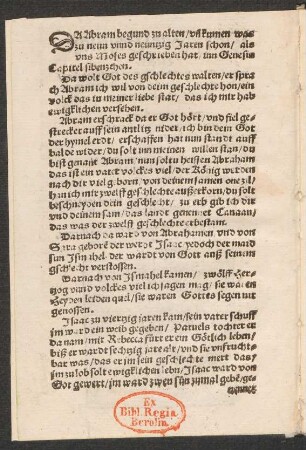 DA Abram begund zu alten / vñ kumen was
zu neun vnnd neüntzig Jaren schon / als
vns Moses geschrieben hat / im Genesis
Capitel sibenzehen.
Da wolt Got des gschlechtes walten / er sprach
Abram ich wil von deim geschlechte hon / ein
volck das in meiner liebe stat / das ich mir hab
ewigklichen versehen.
Abram erschrack da er Got hört / vnd fiel ge-
strecket auff sein antlitz nider / ich bin dein Got
der hymel erd / erschaffen hat nun standt auff
balde wider / du solt inn meinen willen stan / du
bist genañt Abram / nun soltu heissen Abraham
das ist ein vater volckes viel / der König würden
nach dir viel geborn / von deinem samen one zil /
han ich mir zwelff geschlecht außerkorn / du solt
beschneyden dein geschlecht / zu erb gib ich dir
vnd deinem sam / das landt genennet Canaan /
das was der zwelff geschlechte erbestam.
Darnach da ward von Abrahamen vnd von
Sara geborē der werdt Isaac / yedoch der maid
sun Ismahel der ward von Got auß seinem
gschlecht verstossen.
Darnach von Ismahel kamen / zwölff Her-
tzog vnnd volckes viel ich sagen mag / sie waren
Heyden leiden quel / sie waren Gottes segen vn-
genossen.
Isaac zu viertzig jaren kam / sein vater schuff
im ward ein weib gegeben / Patuels tochter er
da nam / mit Rebecca fürt er ein Götlich leben /
biß er wardt sechzig jare alt / vnd sie vnfrucht-
bar was / das er im sein geschlechte mert das /
im zu lob solt ewigklichen lebn / Isaac ward von
Got gewert / im ward zwen sün zumal gebē / ge-
Ex
Bibl. Regia
Berolin.